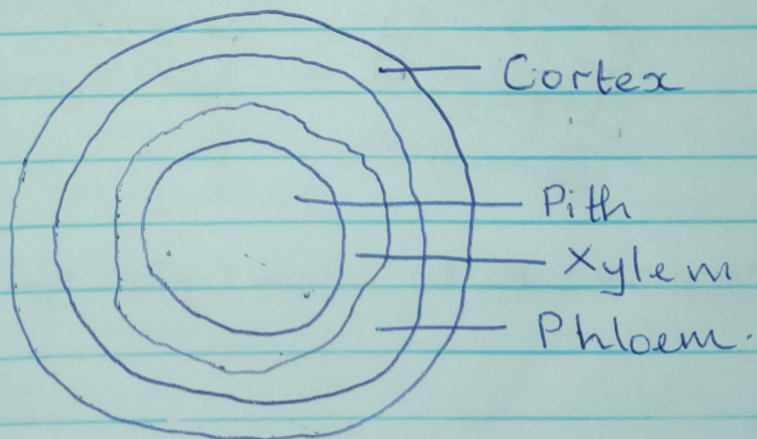 Cortex
Pith
Xylem
Phloem.